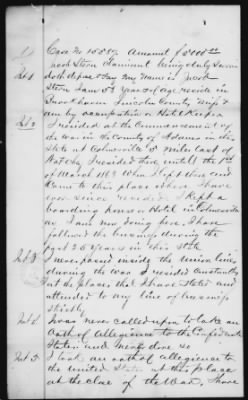 Case No 15889 Amount $
Jacob Stern Claimant being duly Sworn
doth depose & say My Name is Jacob
Stern I am 53 years of age reside in
Brookhaven Lincoln County Miss &
am by occupation a Hotel Keeper
Int 2 I resided at the Commencement of
the war in the County of Adams in this
State at 5 miles East of
Natchez I resided there until the 1st
of March 1863 When I left there and
Came to this place where I have
ever since resided I kept a
boarding house or Hotel in
as I am now doing here. I have
followed the business during the
past 25 years in this State
Int 3 I never passed inside the Union lines
during the war I resided constantly
at the places that I have Stated and
attended to my line of business
strictly
Int 4 I was never called upon to take an
Oath of Allegiance to the Confederate
States and never done so
Int 5 I took an oath of allegiance to
the United States at this place
at the close of the War, I have